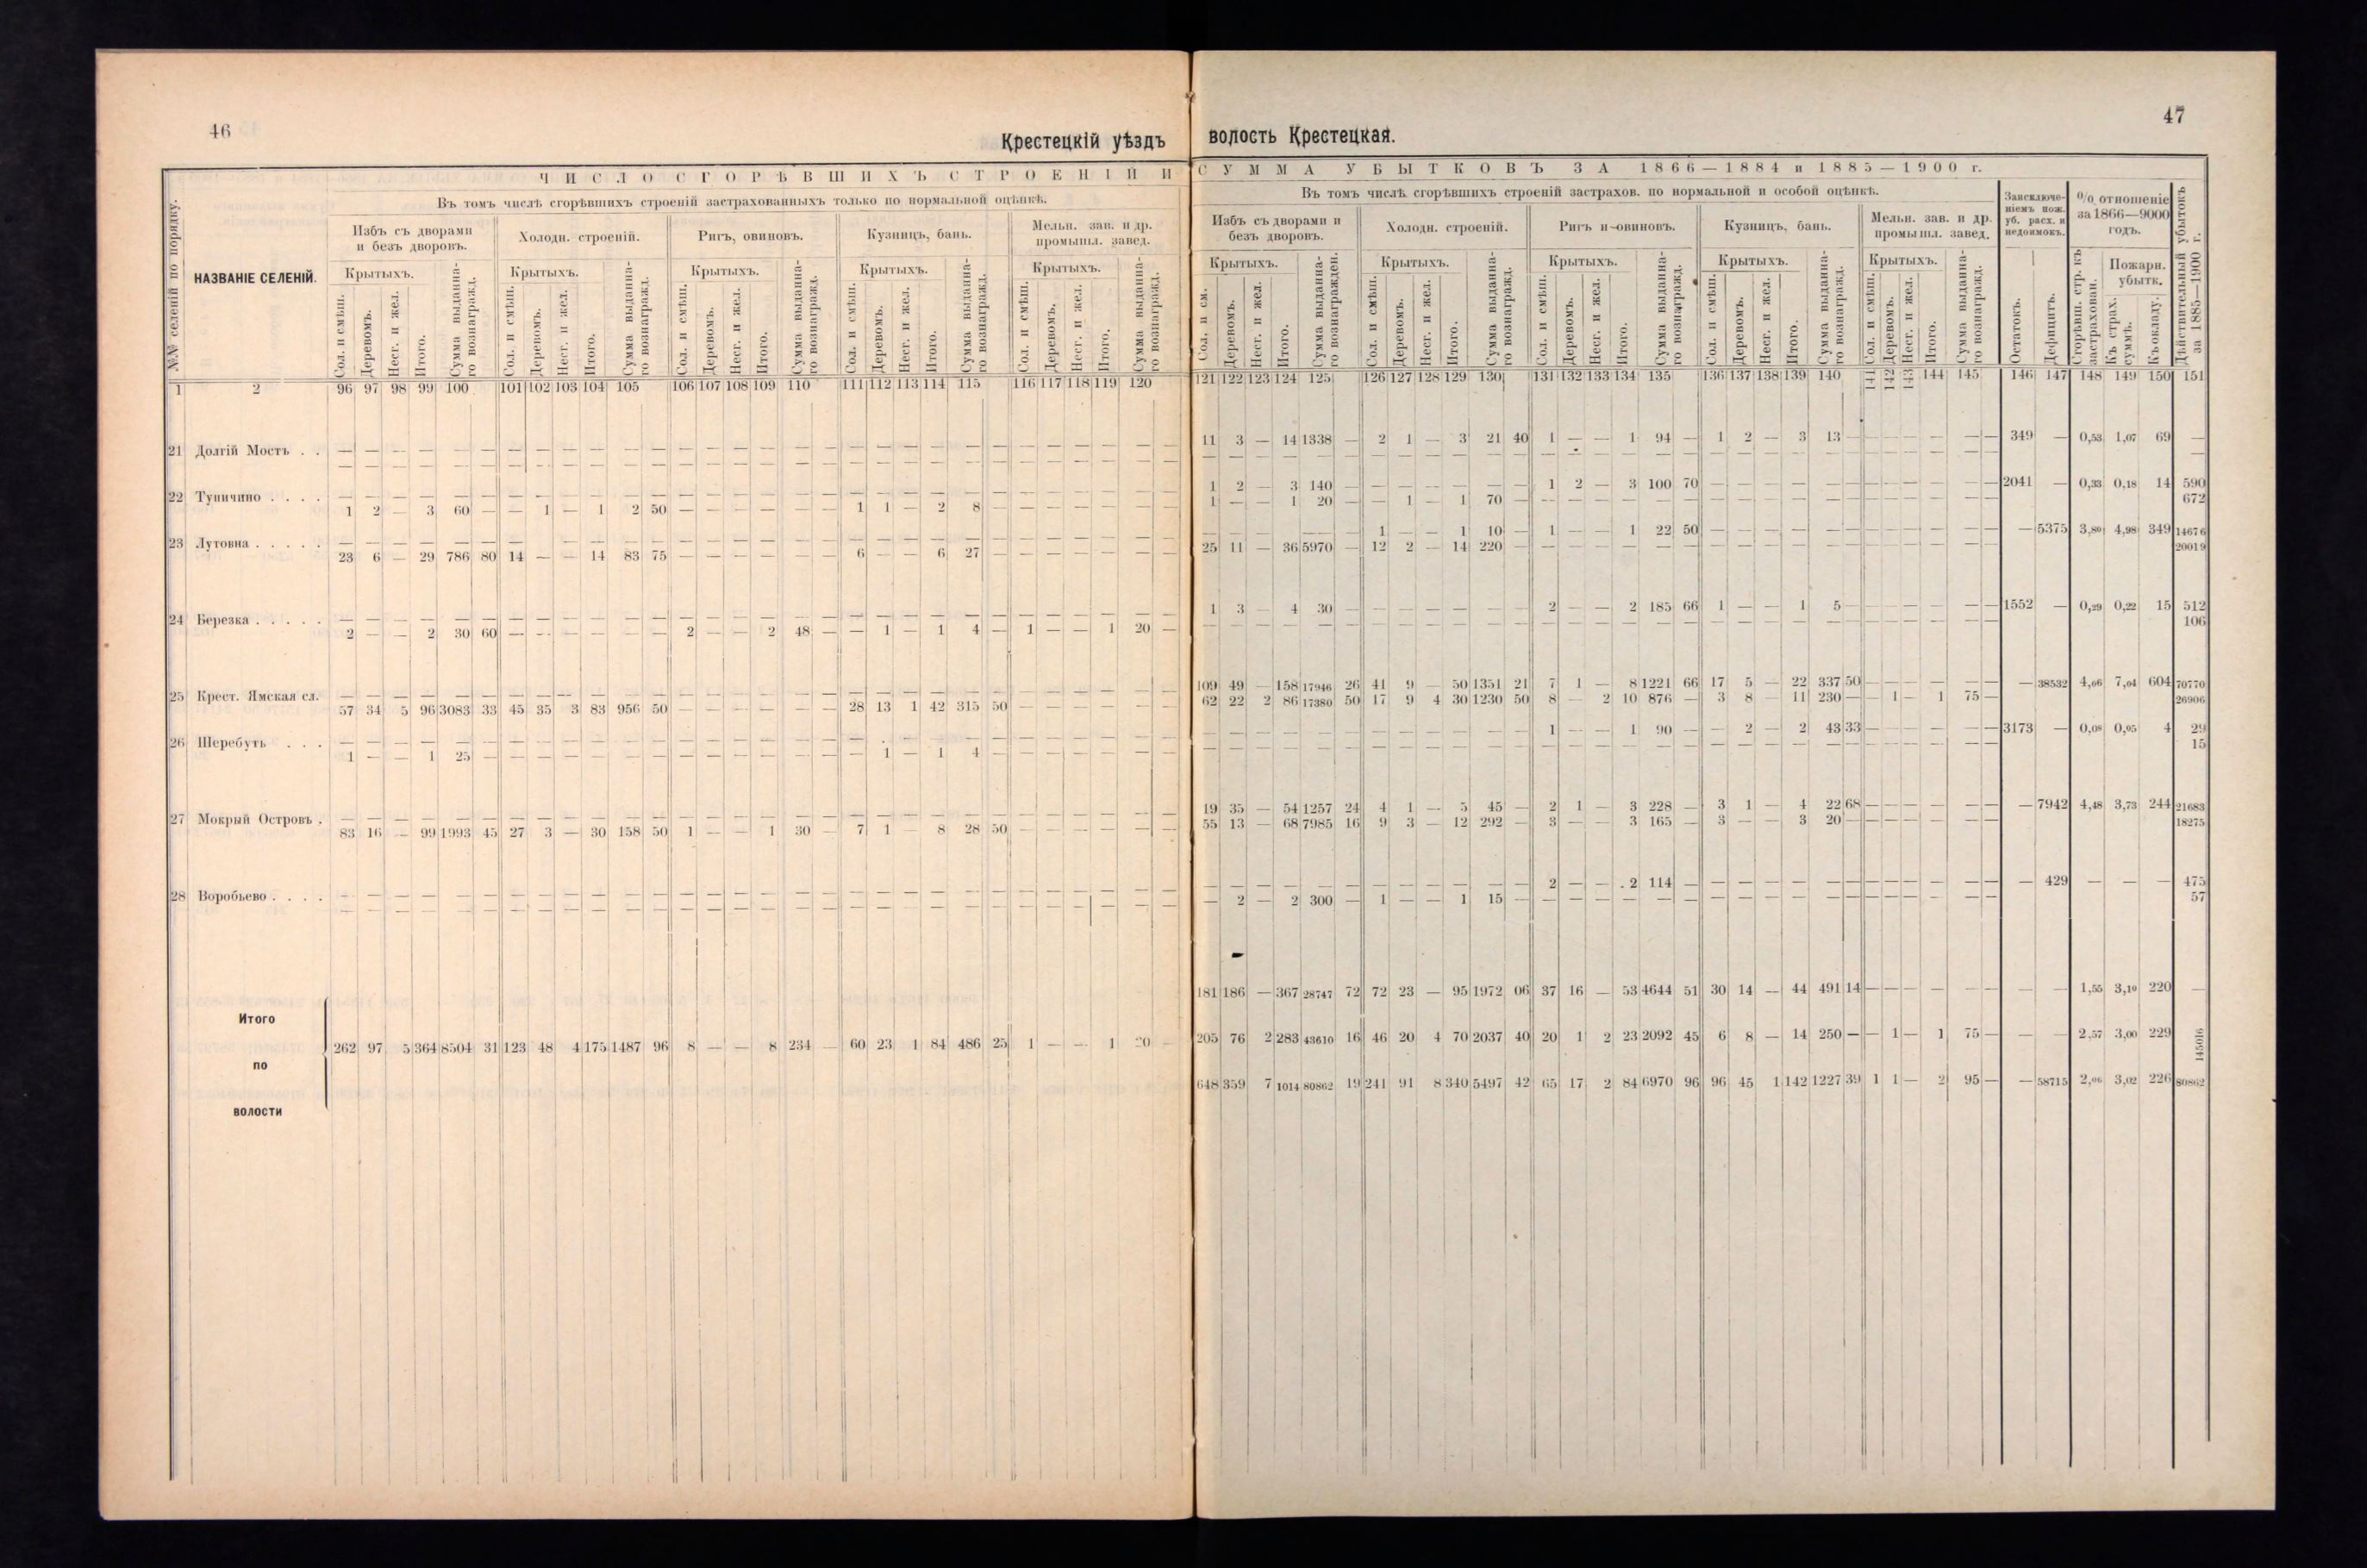 46
Крестецкій уѣздъ
ЧИСЛО СГОРѢВШИХЪ СТРОЕНІЙ И
Въ томъ числѣ сгорѣвшихъ строеній застрахованныхъ только по нормальной оцѣнкѣ.
№№ селеній по порядку.
НАЗВАНІЕ СЕЛЕНІЙ.
Избъ съ дворами и безъ дворовъ.
Холодн. строеній.
Ригъ, овиновъ.
Кузницъ, бань.
Мельн. зав. и др. промышл. завед.
Крытыхъ. Крытыхъ. Крытыхъ. Крытыхъ. Крытыхъ.
Сол. и смѣш. Деревомъ. Несг. и жел. Итого. Сумма выданнаго вознагражд.
Сол. и смѣш. Деревомъ. Несг. и жел. Итого. Сумма выданнаго вознагражд.
Сол. и смѣш. Деревомъ. Несг. и жел. Итого. Сумма выданнаго вознагражд.
Сол. и смѣш. Деревомъ. Несг. и жел. Итого. Сумма выданнаго вознагражд.
Сол. и смѣш. Деревомъ. Несг. и жел. Итого. Сумма выданнаго вознагражд.
1 2 96 97 98 99 100 101 102 103 104 105 106 107 108 109 110 111 112 113 114 115 116 117 118 119 120
21 Долгій Мостъ . .
— — — — — — — — — — — — — — — — — — — — — — — — — — — — — —
22 Тупичино . . . .
1 2 — 3 60 — — 1 — 1 2 50 — — — — — — 1 1 — 2 8 — — — — — — —
23 Лутовна . . . . .
23 6 — 29 786 80 14 — — 14 83 75 — — — — — — 6 — — 6 27 — — — — — — —
24 Березка . . . . .
2 — — 2 30 60 — — — — — — 2 — — 2 48 — — 1 — 1 4 — 1 — — 1 20 —
25 Крест. Ямская сл.
57 34 5 96 3083 33 45 35 3 83 956 50 — — — — — — 28 13 1 42 315 50 — — — — — —
26 Шеребуть . . .
1 — — 1 25 — — — — — — — — — — — — — — 1 — 1 4 — — — — — — —
27 Мокрый Островъ .
83 16 — 99 1993 45 27 3 — 30 158 50 1 — — 1 30 — 7 1 8 28 50 — — — — — —
28 Воробьево . . . .
— — — — — — — — — — — — — — — — — — — — — — — — — — — — — —
Итого
по
волости
262 97 5 364 8504 31 123 48 4 175 1487 96 8 — — 8 234 — 60 23 1 84 486 25 1 — — 1 20 —
47
волость Крестецкая.
СУММА УБЫТКОВЪ ЗА 1866—1884 и 1885—1900 г.
Въ томъ числѣ сгорѣвшихъ строеній застрахов. по нормальной и особой оцѣнкѣ.
Избъ съ дворами и безъ дворовъ.
Холодн. строеній.
Ригъ и овиновъ.
Кузницъ, бань.
Мельн. зав. и др. промышл. завед.
Заисключеніемъ пож. уб. расх. и недоимокъ.
% отношеніе за 1866—9000 годъ.
Дѣйствительный убытокъ за 1885—1900 г.
Крытыхъ. Крытыхъ. Крытыхъ. Крытыхъ. Крытыхъ.
Пожарн. убытк.
Сол. и см. Деревомъ. Несг. и жел. Итого. Сумма выданнаго вознагражден.
Сол. и смѣш. Деревомъ. Несг. и жел. Итого. Сумма выданнаго вознагражд.
Сол. и смѣш. Деревомъ. Несг. и жел. Итого. Сумма выданнаго вознагражд.
Сол. и смѣш. Деревомъ. Несг. и жел. Итого. Сумма выданнаго вознагражд.
Сол. и смѣш. Деревомъ. Несг. и жел. Итого. Сумма выданнаго вознагражд.
Остатокъ. Дефицитъ. Сгорѣвш. стр. къ застрахован. Къ страх. суммѣ. Къ окладу.
121 122 123 124 125 126 127 128 129 130 131 132 133 134 135 136 137 138 139 140 141 142 143 144 145 146 147 148 149 150 151
11 3 — 14 1338 — 2 1 — 3 21 40 1 — — 1 94 — 1 2 — 3 13 — — — — — — — 349 — 0,53 1,07 69 —
1 2 — 3 140 — — — — — — — 1 2 — 3 100 70 — — — — — — — — — — — — 2041 — 0,33 0,18 14 590
1 — — 1 20 — — 1 — 1 70 — — — — — — — — — — — — — — — — — — — 672
— — — — — — 1 — — 1 10 — 1 — — 1 22 50 — — — — — — — — — — — — — 5375 3,80 4,98 349 14676
25 11 — 36 5970 — 12 2 — 14 220 — — — — — — — — — — — — — — — — — — — 20019
1 3 — 4 30 — — — — — — — 2 — — 2 185 66 1 — — 1 5 — — — — — — — 1552 — 0,29 0,22 15 512
— — — — — — — — — — — — — — — — — — — — — — — — — — — — — — 106
109 49 — 158 17946 26 41 9 — 50 1351 21 7 1 — 8 1221 66 17 5 — 22 337 50 — — — — — — — 38532 4,06 7,04 604 70770
62 22 2 86 17380 50 17 9 4 30 1230 50 8 — 2 10 876 — 3 8 — 11 230 — — 1 — 1 75 — 26906
— — — — — — — — — — — — 1 — — 1 90 — — 2 — 2 43 33 — — — — — — 3173 — 0,08 0,05 4 29
— — — — — — — — — — — — — — — — — — — — — — — — — — — — — — 15
19 35 — 54 1257 24 4 1 — 5 45 — 2 1 — 3 228 — 3 1 — 4 22 68 — — — — — — — 7942 4,48 3,73 244 21683
55 13 — 68 7985 16 9 3 — 12 292 — 3 — — 3 165 — 3 — — 3 20 — — — — — — — 18275
— — — — — — — — — — — — 2 — — 2 114 — — — — — — — — — — — — — — 429 — — — 475
— 2 — 2 300 — 1 — — 1 15 — — — — — — — — — — — — — — — — — — — 57
181 186 — 367 28747 72 72 23 — 95 1972 06 37 16 — 53 4644 51 30 14 — 44 491 14 — — — — — — — — 1,55 3,10 220 —
205 76 2 283 43610 16 46 20 4 70 2037 40 20 1 2 23 2092 45 6 8 — 14 250 — — 1 — 1 75 — — — 2,57 3,00 229 145016
648 359 7 1014 80862 19 241 91 8 340 5497 42 65 17 2 84 6970 96 96 45 1 142 1227 39 1 1 — 2 95 — — 58715 2,06 3,02 226 80862